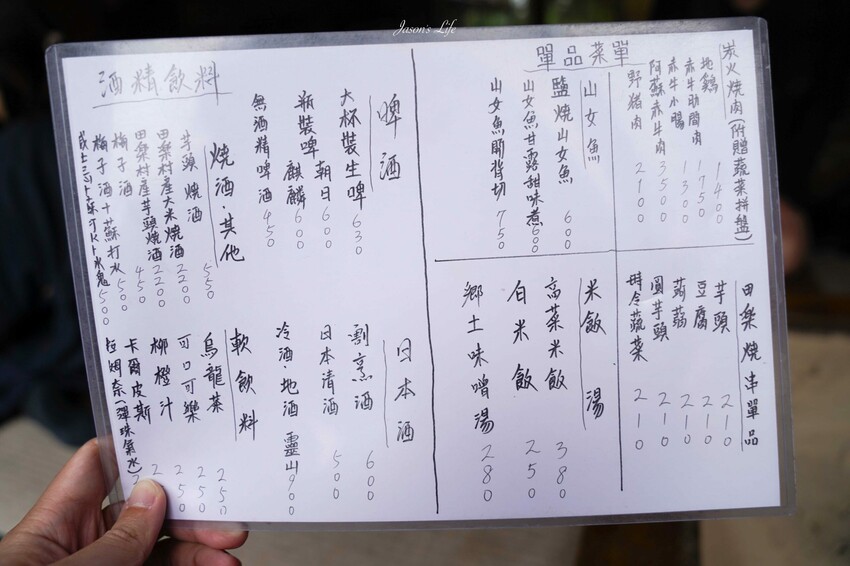 Jason's Life
單品菜單
炭火燒肉(附贈蔬菜拼盤)
地鷄 1400
赤牛肋間肉 1750
赤牛小腸 1300
阿蘇赤牛肉 3500
野猪肉 2100
山女魚
鹽燒山女魚 600
山女魚甘露甜味煮 600
山女魚開背切 750
田樂燒串單品
芋頭 210
豆腐 210
蒟蒻 210
圓芋頭 210
時令蔬菜 210
米飯 湯
高菜米飯 380
白米飯 250
鄉土味噌湯 280
酒精飲料
啤酒
大杯裝生啤 630
瓶裝啤 朝日 600
麒麟 600
無酒精啤酒 450
燒酒·其他
芋頭燒酒 550
田樂村產大米燒酒 2200
田樂村產芋頭燒酒 450
梅子酒
梅子酒+蘇打水 500
500
日本酒
割烹酒 600
日本清酒 500
冷酒·地酒 靈山 900
軟飲料
烏龍茶 250
可口可樂 250
柳橙汁 250
卡爾皮斯 2
拉姆奈(彈珠氣水) 2